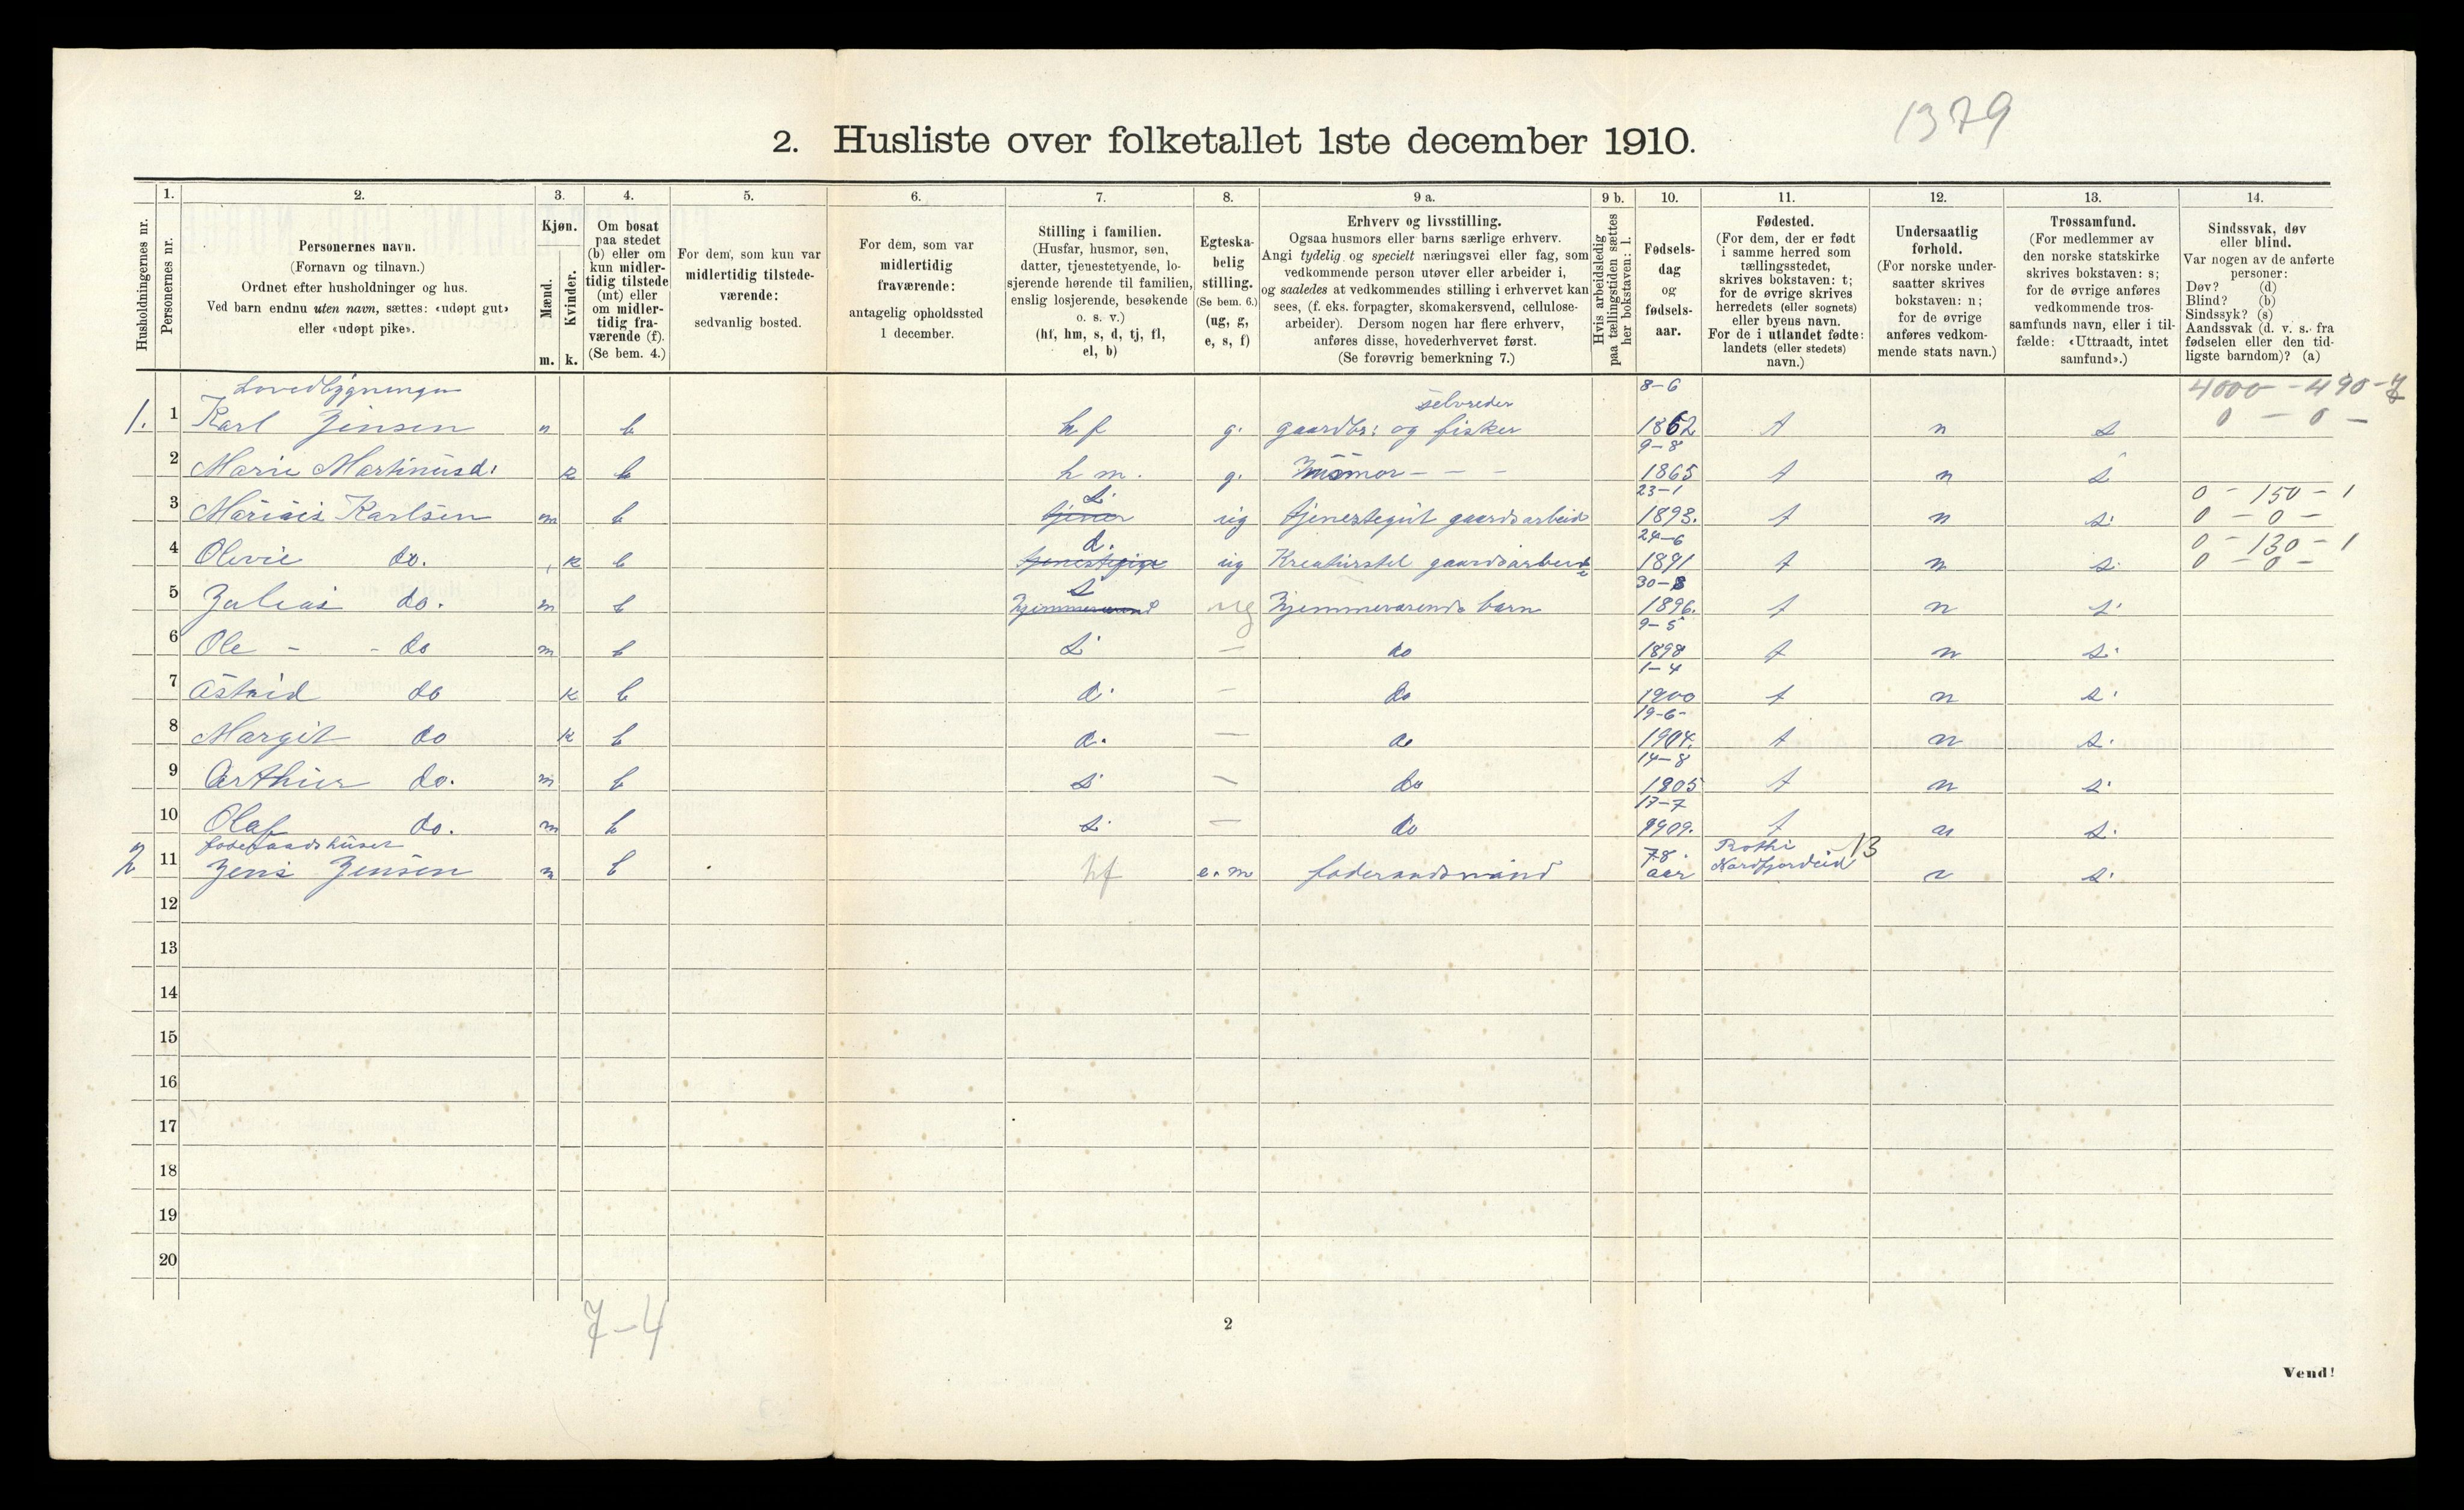 1379
2. Husliste over folketallet 1ste december 1910.
Husholdningernes nr.
1. Personernes nr.
2. Personernes navn.
(Fornavn og tilnavn.)
Ordnet efter husholdninger og hus.
Ved barn endnu uten navn, sættes: «udøpt gut»
eller «udøpt pike».
3. Kjøn.
Mænd. m.
Kvinder. k.
4. Om bosat
paa stedet
(b) eller om
kun midler-
tidig tilstede
(mt) eller
om midler-
tidig fra-
værende (f).
(Se bem. 4.)
5. For dem, som kun var
midlertidig tilstede-
værende:
sedvanlig bosted.
6. For dem, som var
midlertidig
fraværende:
antagelig opholdssted
1 december.
7. Stilling i familien.
(Husfar, husmor, søn,
datter, tjenestetyende, lo-
sjerende hørende til familien,
enslig losjerende, besøkende
o. s. v.)
(hf, hm, s, d, tj, fl,
el, b)
8. Egteska-
belig
stilling.
(Se bem. 6.)
(ug, g,
e, s, f)
9 a. Erhverv og livsstilling.
Ogsaa husmors eller barns særlige erhverv.
Angi tydelig og specielt næringsvei eller fag, som
vedkommende person utøver eller arbeider i,
og saaledes at vedkommendes stilling i erhvervet kan
sees, (f. eks. forpagter, skomakersvend, cellulose-
arbeider). Dersom nogen har flere erhverv,
anføres disse, hovederhvervet først.
(Se forøvrig bemerkning 7.)
9 b. Hvis arbeidsledig
paa tællingstiden sættes
her bokstaven: l.
10. Fødsels-
dag
og
fødsels-
aar.
11. Fødested.
(For dem, der er født
i samme herred som
tællingsstedet,
skrives bokstaven: t;
for de øvrige skrives
herredets (eller sognets)
eller byens navn.
For de i utlandet fødte:
landets (eller stedets)
navn.)
12. Undersaatlig
forhold.
(For norske under-
saatter skrives
bokstaven: n;
for de øvrige
anføres vedkom-
mende stats navn.)
13. Trossamfund.
(For medlemmer av
den norske statskirke
skrives bokstaven: s;
for de øvrige anføres
vedkommende tros-
samfunds navn, eller i til-
fælde: «Uttraadt, intet
samfund».)
14. Sindssvak, døv
eller blind.
Var nogen av de anførte
personer:
Døv? (d)
Blind? (b)
Sindssyk? (s)
Aandssvak (d. v. s. fra
fødselen eller den tid-
ligste barndom)? (a)
8-6 4000 - 490 -
selvreder 0 - 0 -
1. 1 Karl Jensen m b hf g. gaardbr: og fisker 1862 t n s
9-8
2 Marie Martinusd: k b hm. g. Husmor - - - 1865 t n s
s. 23-1 0 - 150 - 1
3 Karlsen m b tjener ug tjenestegut gaardsarbeid 1893. t n s. 0 - 0 -
d. 24-6 0 - 130 - 1
4 do. k b ug Kreaturstel gaardsarbeid 1891 t n s. 0 - 0 -
s 30-8
5 do. m b ug Hjemmeværende barn 1896. t n s.
9-5
6 Ole - - do m b s - do 1898 t n s.
1-4
7 Astrid do k b d. - do 1900 t n s.
19-6-
8 Margit do k b d. - do 1904. t n s.
14-8
9 Arthur do. m b s - do 1905 t n s.
17-7
10 Olaf do. m b s. - do 1909. t n s.
78. Nordfjordeid 13
2 11 Jens Jensen m b hf e. m foderaadsmand aar n s.
12
13
14
15
16
17
18
19
20
7-4
2
Vend!